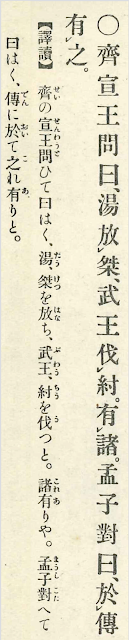 〇齊宣王問曰、湯放レ桀、武王伐レ紂。有レ諸。孟子對曰、於レ傳
有レ之。
【譯讀】齊の宣王問ひて曰はく、湯、桀を放ち、武王、紂を伐つと。諸有りや。孟子對へて
曰はく、傳に於て之れ有りと。